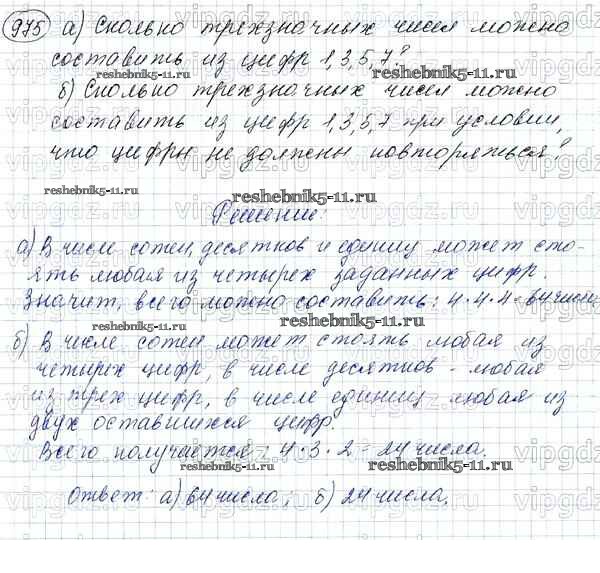 975 а) Сколько трехзначных чисел можно
составить из цифр 1,3,5,7?
reshebnik5-11.ru
б) Сколько трехзначных чисел можно
составить из цифр 1,3,5,7 при условии,
что цифры не должны повторяться?
reshebnik5-11.ru
reshebnik5-11.ru
Решение:
а) В числе сотен, десятков и единиц может сто-
ять любая из четырех заданных цифр.
Значит, всего можно составить: 4·4·4=64 числа
reshebnik5-11.ru
reshebnik5-11.ru
б) В числе сотен может стоять любая из
четырех цифр, в числе десятков - любая
из трех цифр, в числе единиц любая из
двух оставшихся цифр.
Всего получается: 4·3·2=24 числа.
reshebnik5-11.ru
reshebnik5-11.ru
Ответ: а) 64 числа; б) 24 числа.